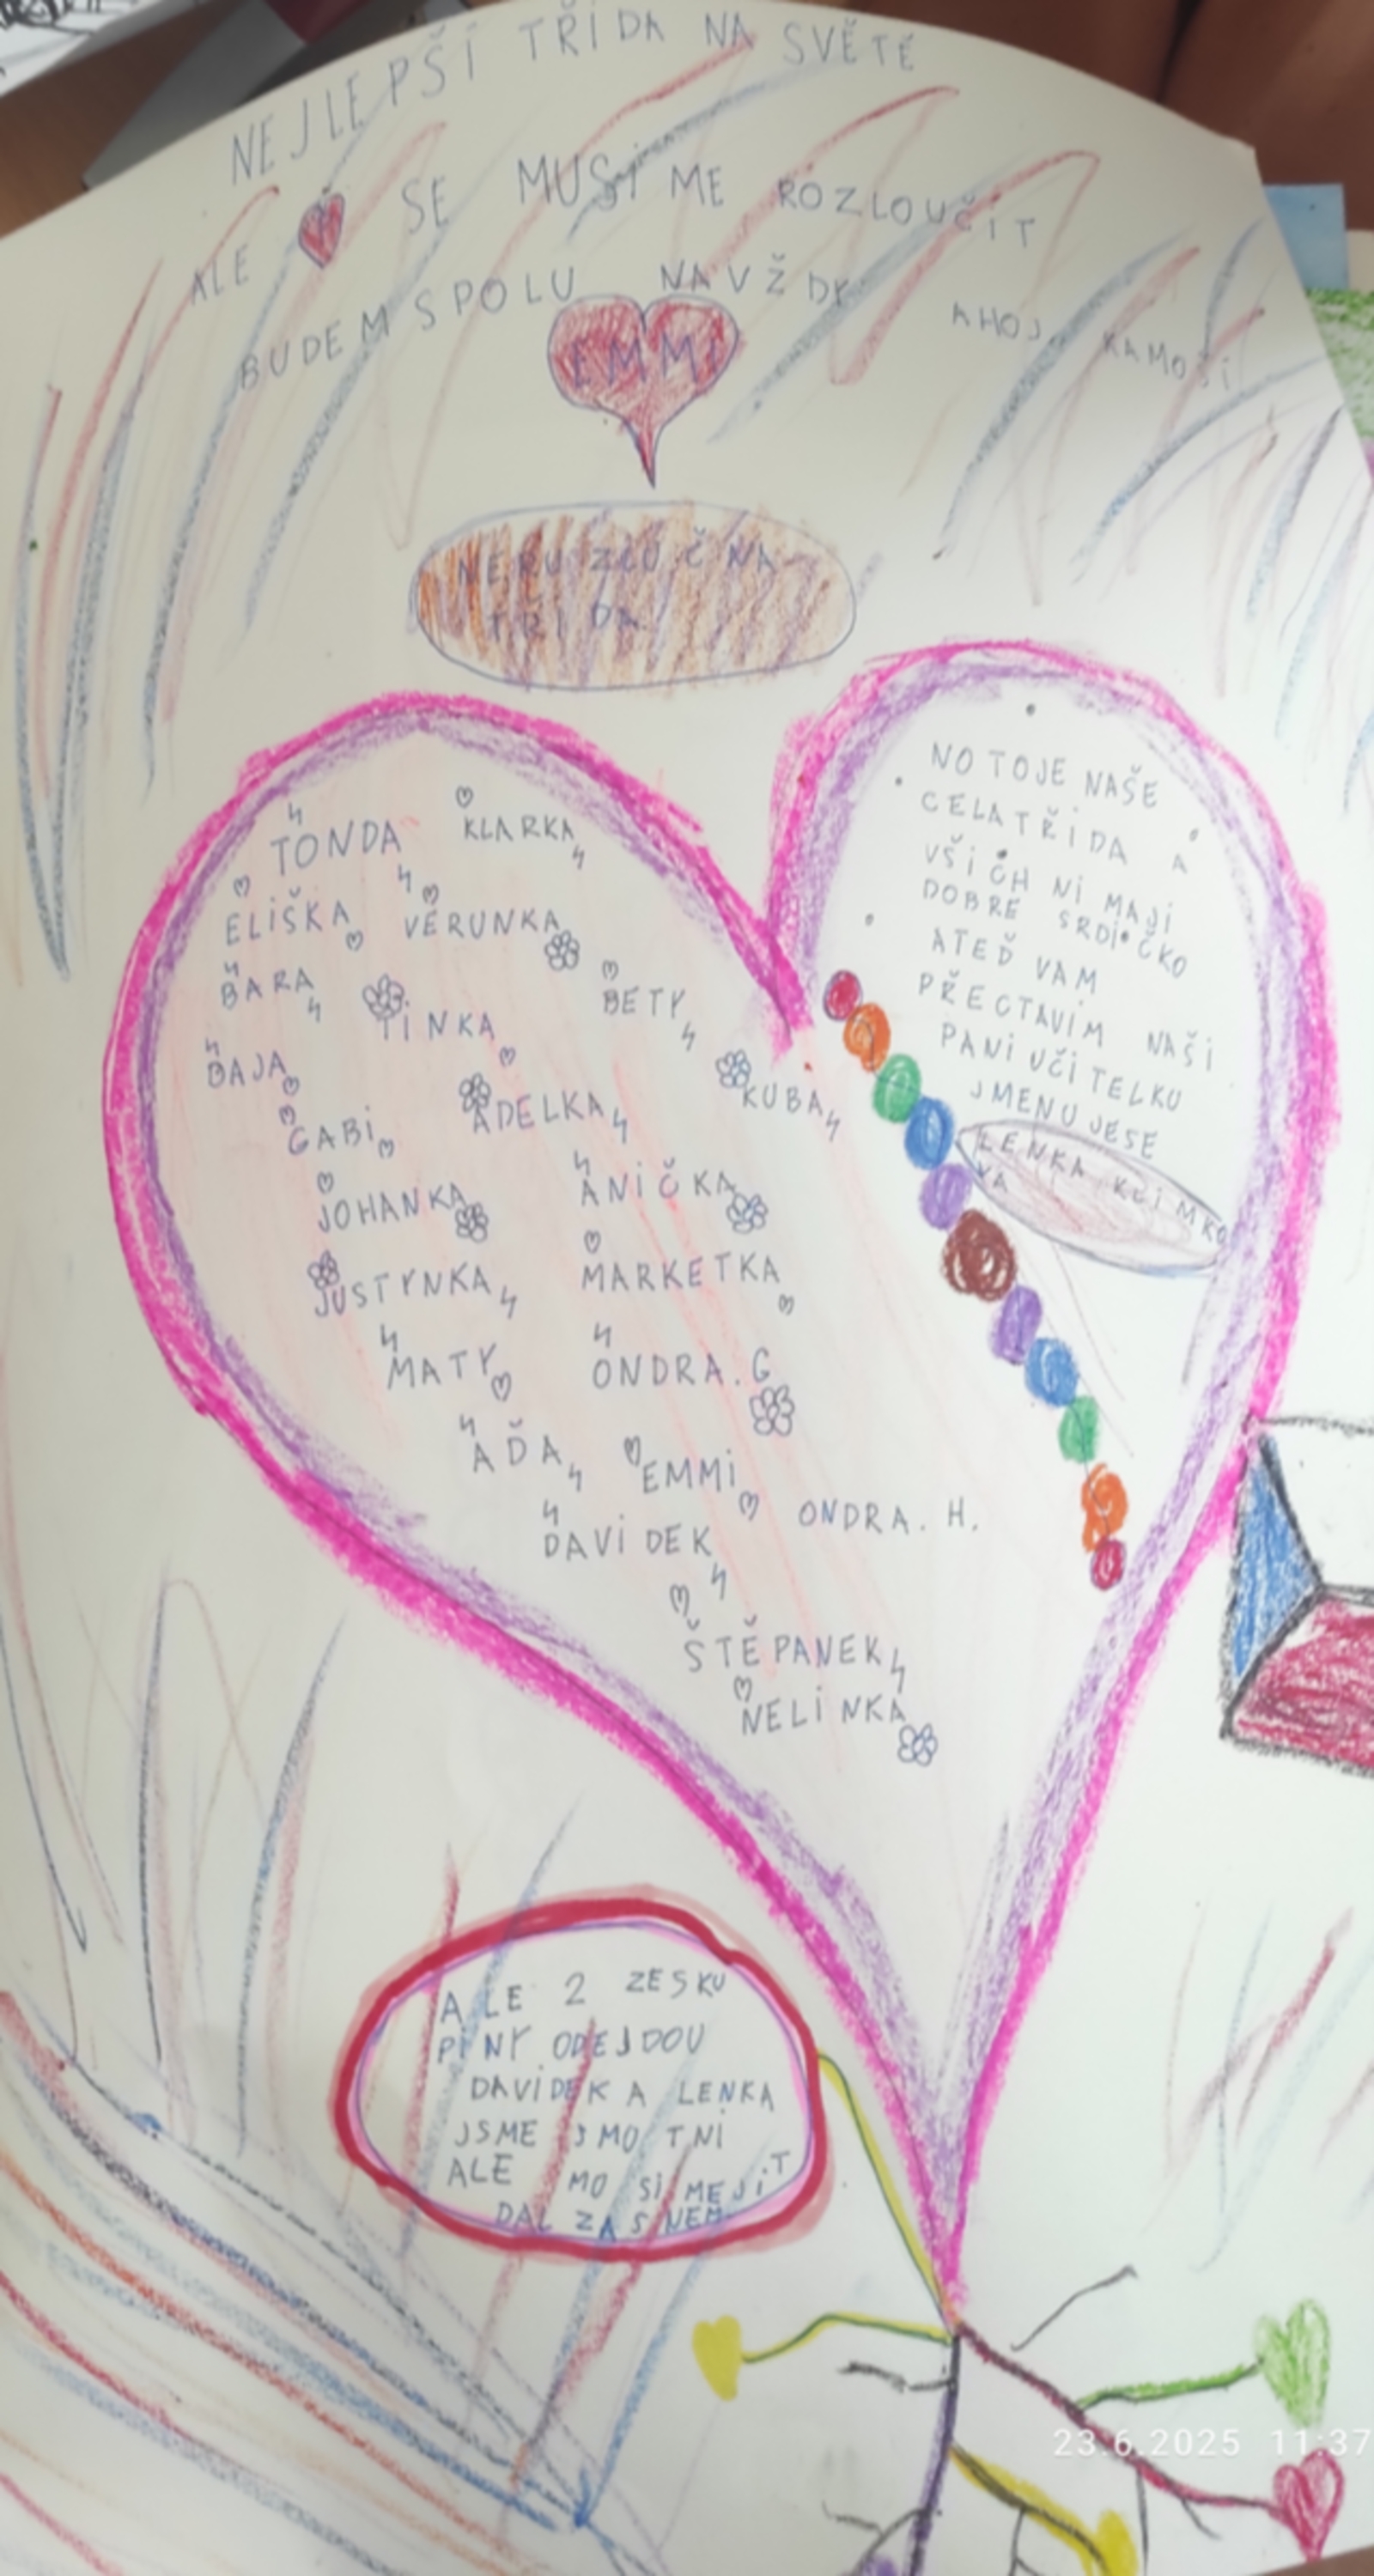 NEJLEPŠÍ TŘIDA NA SVĚTĚ
ALE SE MUSÍME ROZLOUČIT
BUDEM SPOLU NAVŽDY
AHOJ KAMOŠI
EMMI
NERUZLUČNA
TŘIDA
TONDA KLARKA
ELIŠKA VERUNKA
BARA TINKA BETY
BAJA
GABI ADELKA KUBA
JOHANKA ANIČKA
JUSTYNKA MARKETKA
MATY ONDRA.G
AĎA EMMI
DAVIDEK ONDRA.H.
ŠTĚPANEK
NELINKA
NO TOJE NAŠE
CELATŘIDA A
VŠICHNI MAJI
DOBRE SRDIČKO
ATEĎ VAM
PŘECTAVIM NAŠI
PANI UČITELKU
JMENUJESE
LENKA KLIMKO
VA
ALE 2 ZESKU
PINY ODEJDOU
DAVIDEK A LENKA
JSME SMOTNI
ALE MOSIMEJIT
DAL ZASNEM
23.6.2025 11:37